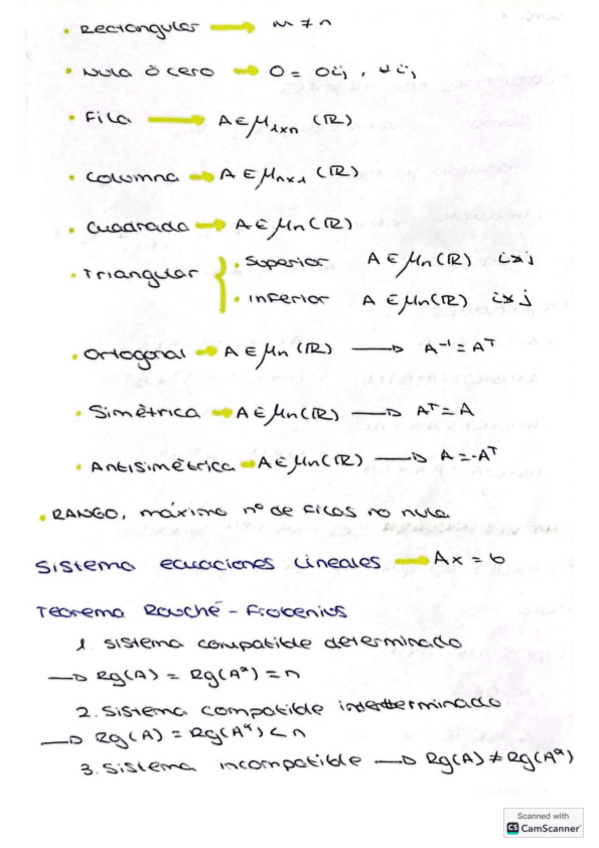 • Rectangular → m ≠ n
• Nula ó cero → O = Oij, ∀ij
• Fila → A ∈ M1xn (R)
• Columna → A ∈ Mnx1 (R)
• Cuadrada → A ∈ Mn (R)
• Triangular { • Superior A ∈ Mn (R) i>j
• Inferior A ∈ Mn (R) i>j
• Ortogonal → A ∈ Mn (R) → A⁻¹ = Aᵀ
• Simétrica → A ∈ Mn (R) → Aᵀ = A
• Antisimétrica → A ∈ Mn (R) → A = -Aᵀ
• RANGO, máximo nº de filas no nula
Sistema ecuaciones lineales → Ax = b
Teorema Rouché - Frobenius
1. sistema compatible determinado
→ Rg(A) = Rg(A*) = n
2. Sistema compatible indeterminado
→ Rg(A) = Rg(A*) < n
3. Sistema incompatible → Rg(A) ≠ Rg(A*)
Scanned with
CS CamScanner